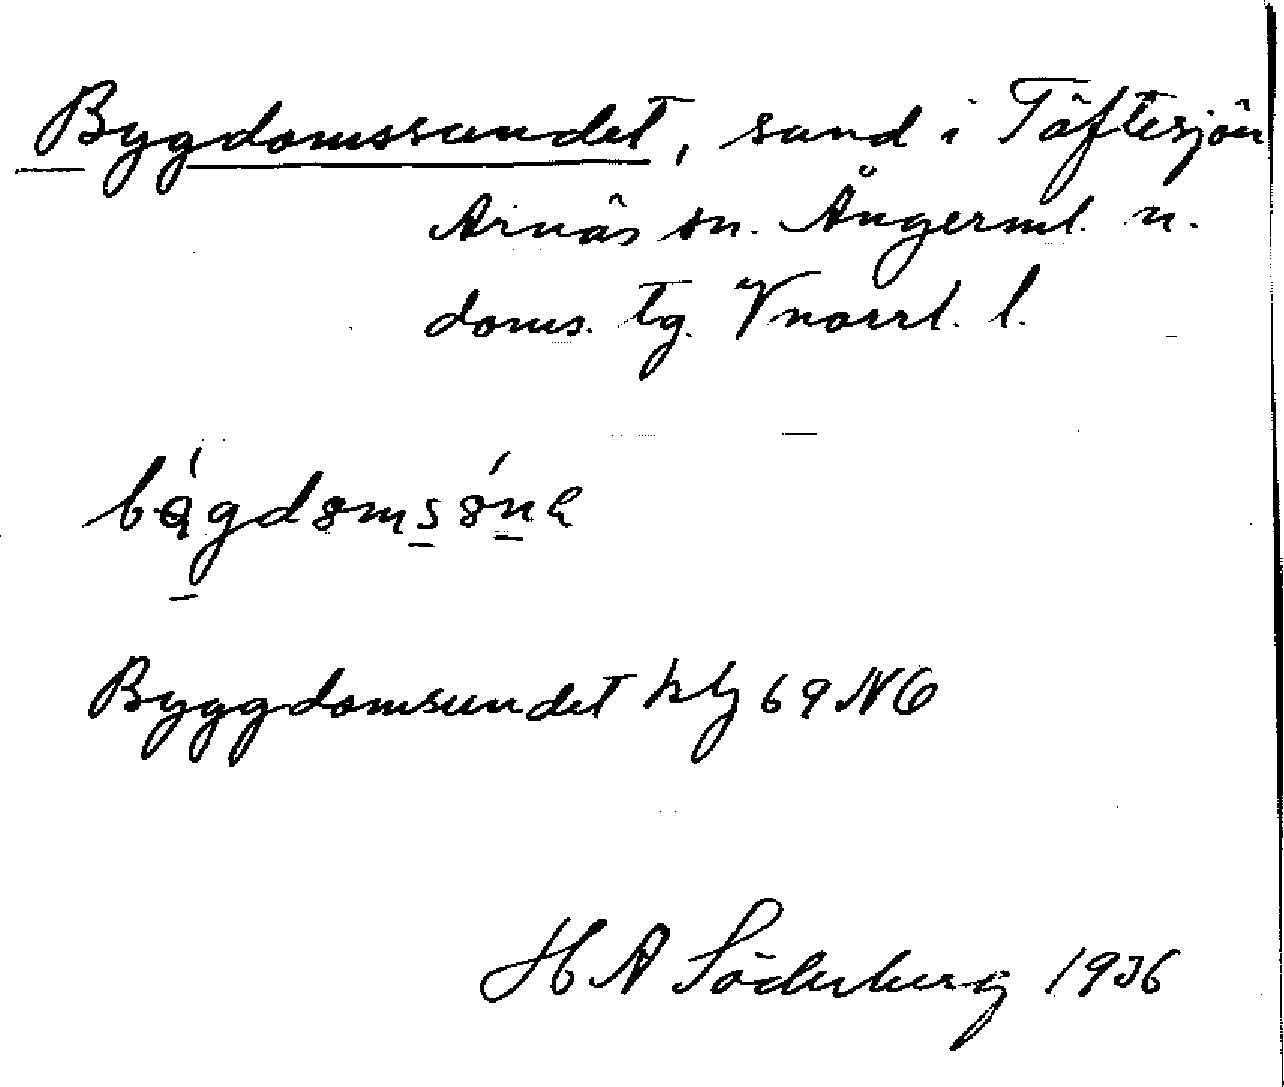 Bygdomssundet, sund i Täftesjön
Arnäs sn. Ångerml. n.
doms. tg. Vnorrl. l.
Byggdomsundet klg 69 NO
H A Söderberg 1936